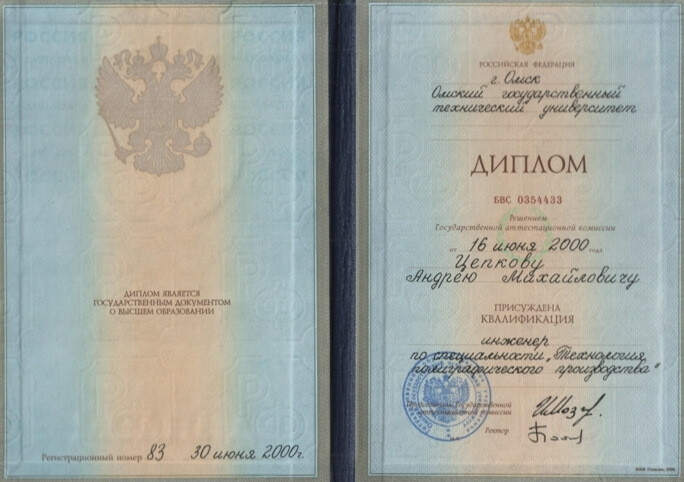 ДИПЛОМ ЯВЛЯЕТСЯ
ГОСУДАРСТВЕННЫМ ДОКУМЕНТОМ
О ВЫСШЕМ ОБРАЗОВАНИИ
Регистрационный номер 83 30 июня 2000г.
РОССИЙСКАЯ ФЕДЕРАЦИЯ
г. Омск
Омский государственный
технический университет
ДИПЛОМ
БВС 0354433
Решением
Государственной аттестационной комиссии
от 16 июня 2000 года
Цепкову
Андрею Михайловичу
ПРИСУЖДЕНА
КВАЛИФИКАЦИЯ
инженер
по специальности „Технология
полиграфического производства"
Председатель Государственной
аттестационной комиссии
Ректор